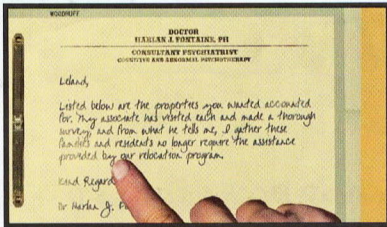 WOODRUFF
DOCTOR
HARLAN J. FONTAINE, PH
CONSULTANT PSYCHIATRIST
COGNITIVE AND ABNORMAL PSYCHOTHERAPY
Leland,
Listed below are the properties you wanted accounted
for. My associate has visited each and made a thorough
survey, and from what he tells me, I gather these
families and residents no longer require the assistance
provided by our relocation program.
Kind Regard
Dr Harlan J. F